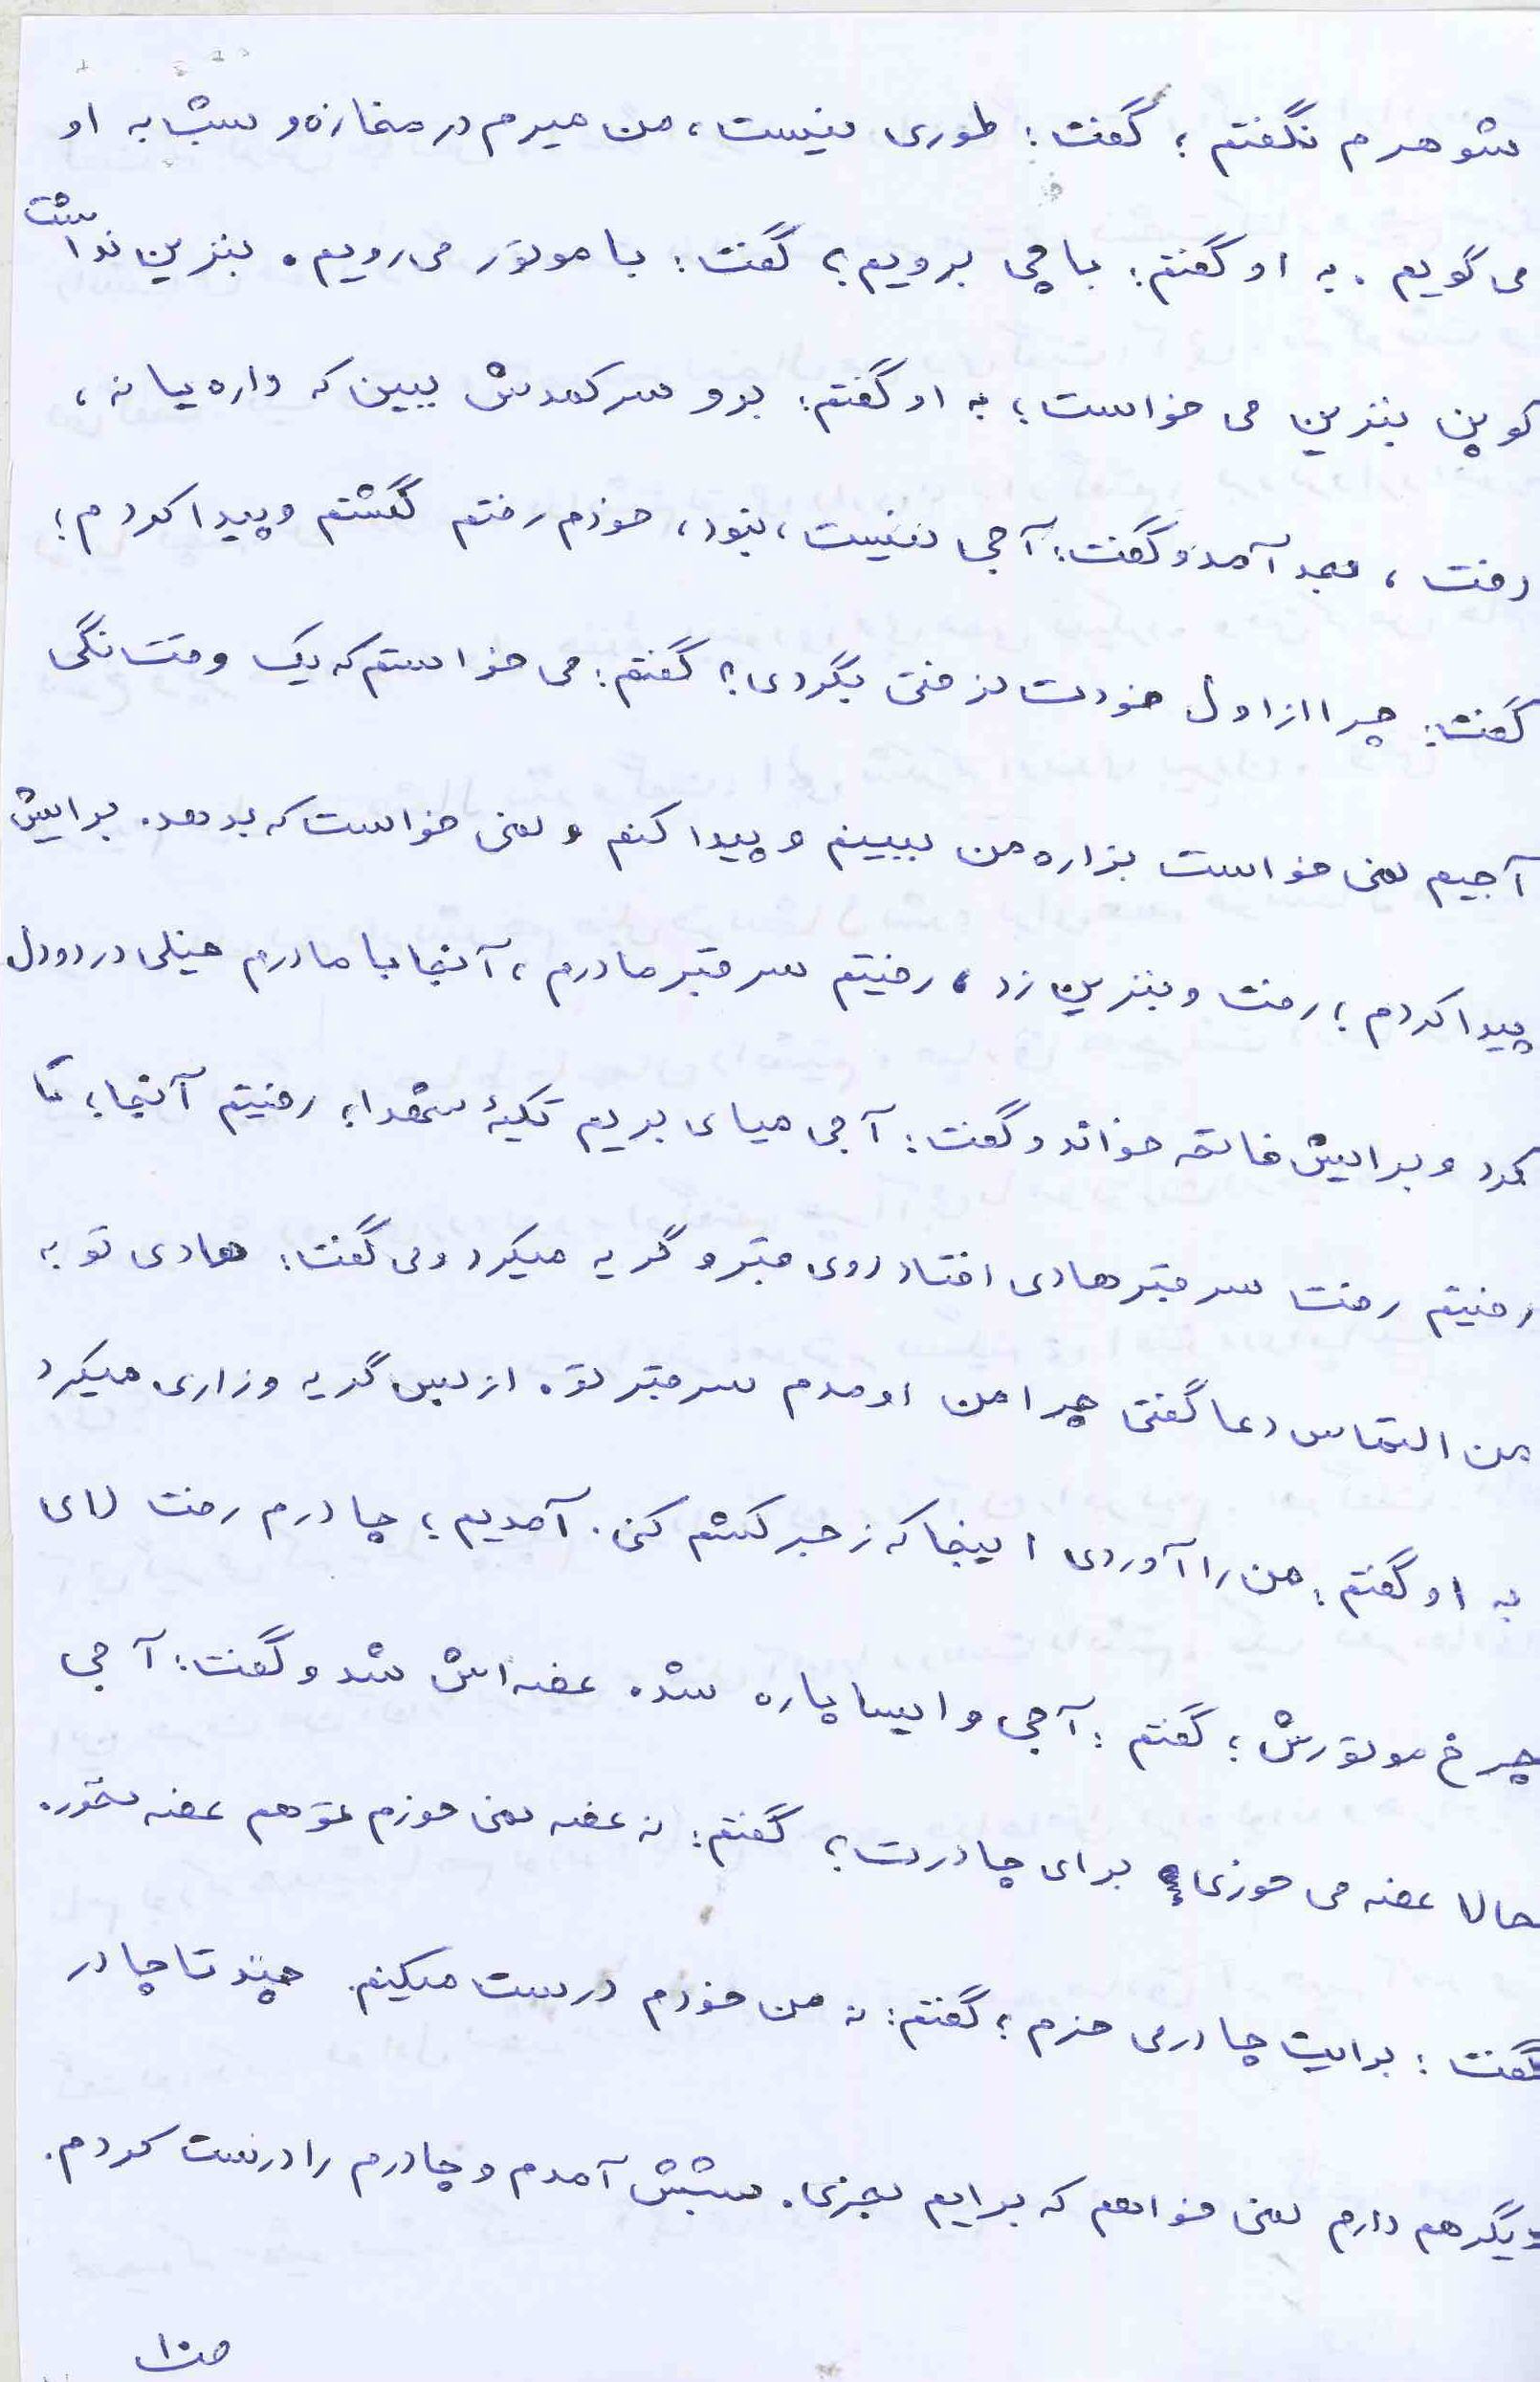 شوهرم نگفتم؛ گفت: طوری نیست، من میرم در مغازه و شب به او
می گویم. به او گفتم: با چی برویم؟ گفت: با موتور می رویم. بنزین نداشت
کوپن بنزین می خواست؛ به او گفتم: برو سر کمدش ببین که داره یا نه،
رفت، بعد آمد و گفت: آجی نیست، نبود، خودم رفتم گشتم و پیدا کردم؛
گفت: چرا از اول خودت نرفتی بگردی؟ گفتم: می خواستم که یک وقت نگی
آجیم نمی خواست بزاره من ببینم و پیدا کنم و نمی خواست که بدهد. برایش
پیدا کردم؛ رفت و بنزین زد، رفتیم سر قبر مادرم، آنجا با مادرم خیلی درد و دل
کرد و برایش فاتحه خواند و گفت: آجی میای بریم تکیهٔ شهدا؛ رفتیم آنجا؛ تا
رفتیم رفت سر قبر هادی افتاد روی قبر و گریه میکرد و می گفت: هادی تو به
من التماس دعا گفتی چرا من اومدم سر قبر تو. از بس گریه و زاری میکرد
به او گفتم: من را آوردی اینجا که زجر کشم کنی. آمدیم؛ چادرم رفت لای
چرخ موتورش؛ گفتم: آجی وایسا پاره شد. غصه اش شد و گفت: آجی
حالا غصه می خوری برای چادرت؟ گفتم: نه غصه نمی خورم تو هم غصه نخور.
گفت: برایت چادر می خرم؛ گفتم: نه من خودم درست میکنم. چند تا چادر
دیگر هم دارم نمی خواهم که برایم بخری. شبش آمدم و چادرم را درست کردم.
ص۱۰